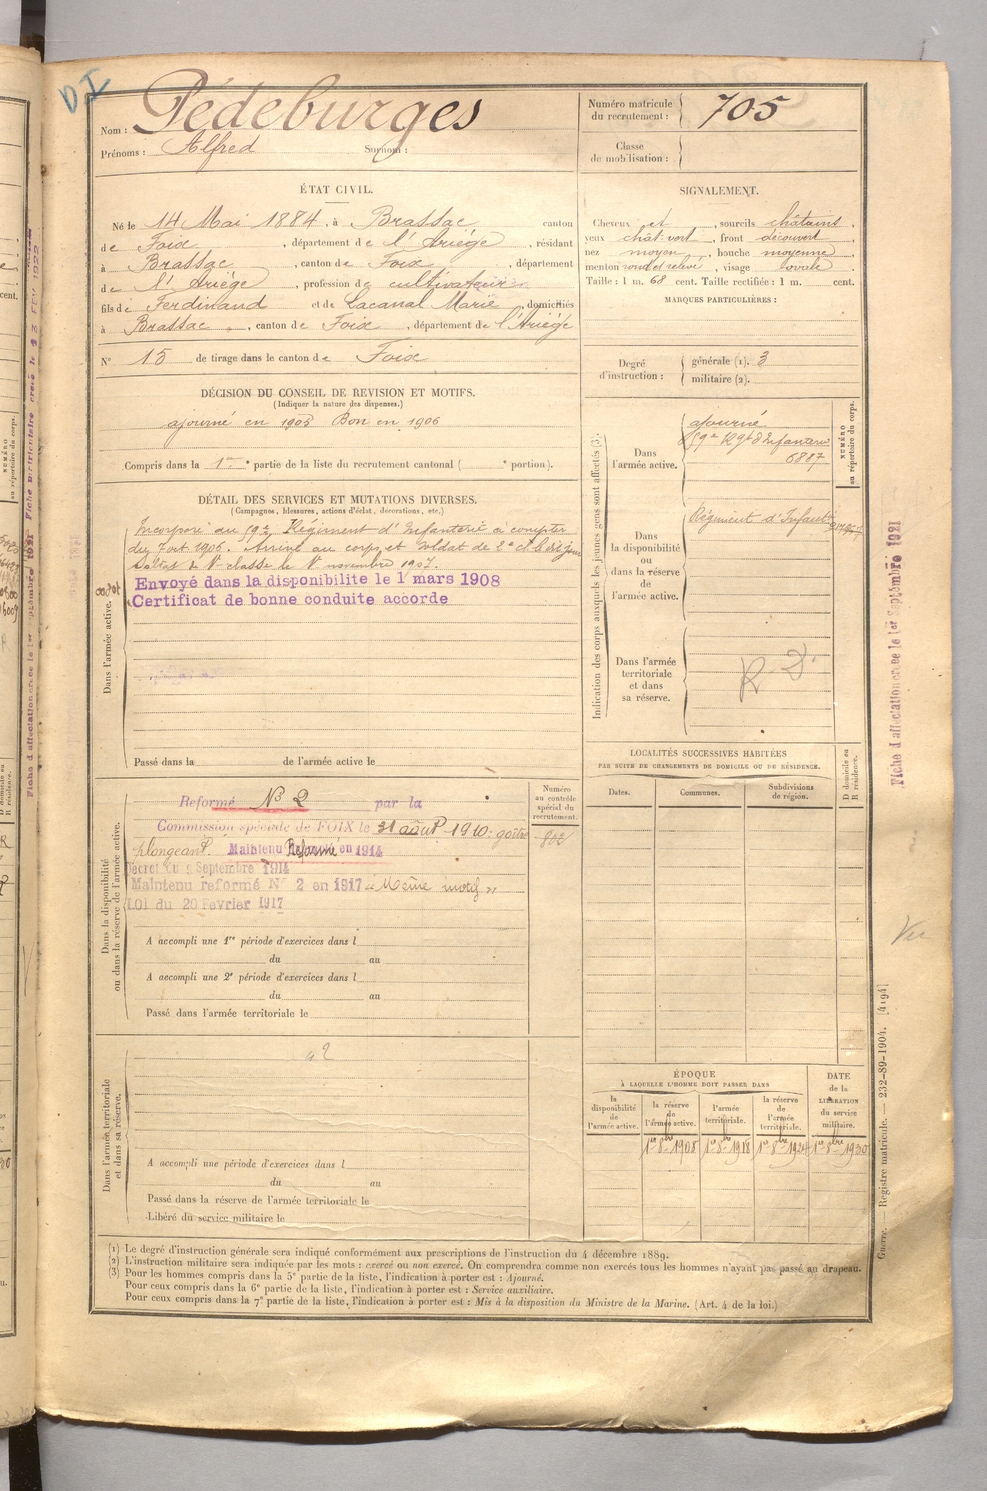 DI
Nom : Pédeburges
Prénoms : Alfred Surnom :
Numéro matricule du recrutement : 705
Classe de mobilisation :
ÉTAT CIVIL.
Né le 14 Mai 1884, à Brassac canton
de Foix, département de l'Ariège, résidant
à Brassac, canton de Foix, département
de l'Ariège, profession de cultivateur
fils de Ferdinand et de Lacanal Marie, domiciliés
à Brassac, canton de Foix, département de l'Ariège
N° 15 de tirage dans le canton de Foix
SIGNALEMENT.
Cheveux et, sourcils châtains,
yeux chât: vert, front découvert
nez moyen, bouche moyenne
menton rond et relevé, visage ovale.
Taille : 1 m. 68 cent. Taille rectifiée : 1 m. cent.
MARQUES PARTICULIÈRES :
Degré d'instruction : générale (1). 3
militaire (2).
DÉCISION DU CONSEIL DE REVISION ET MOTIFS.
(Indiquer la nature des dispenses.)
ajourné en 1905 Bon en 1906
Compris dans la 1re partie de la liste du recrutement cantonal ( portion).
DÉTAIL DES SERVICES ET MUTATIONS DIVERSES.
(Campagnes, blessures, actions d'éclat, décorations, etc.)
Dans l'armée active.
Incorporé au 59e Régiment d'Infanterie à compter
du 7 8bre 1906. Arrivé au corps et soldat de 2e cl. le dit jour
Soldat de 1re classe le 1er novembre 1907.
Envoyé dans la disponibilite le 1er mars 1908
Certificat de bonne conduite accorde
Passé dans la de l'armée active le
Indication des corps auxquels les jeunes gens sont affectés (3).
NUMÉRO au répertoire du corps.
Dans l'armée active.
ajourné
59e Rgt d'Infanterie
6887
Dans la disponibilité ou dans la réserve de l'armée active.
Régiment d'Infant
Dans l'armée territoriale et dans sa réserve.
R D
Fiche d'affectation créée le 1er Septembre 1921
LOCALITÉS SUCCESSIVES HABITÉES
PAR SUITE DE CHANGEMENTS DE DOMICILE OU DE RÉSIDENCE.
Dates.
Communes.
Subdivisions de région.
D domicile ou R résidence.
Dans la disponibilité ou dans la réserve de l'armée active.
Numéro au contrôle spécial du recrutement.
Reformé N° 2 par la
Commission spéciale de FOIX le 31 août 1910: goître
plongeant. Maintenu Réformé en 1914
Décret du 9 Septembre 1914
Maintenu reformé N° 2 en 1917 "Même motif"
LOI du 20 Fevrier 1917
A accompli une 1re période d'exercices dans l
du au
A accompli une 2e période d'exercices dans l
du au
Passé dans l'armée territoriale le
Vu
Dans l'armée territoriale et dans sa réserve.
A accompli une période d'exercices dans l
du au
Passé dans la réserve de l'armée territoriale le
Libéré du service militaire le
ÉPOQUE
À LAQUELLE L'HOMME DOIT PASSER DANS
DATE de la LIBÉRATION du service militaire.
la disponibilité de l'armée active.
la réserve de l'armée active.
l'armée territoriale.
la réserve de l'armée territoriale.
1er 8bre 1908
1er 8bre 1918
1er 8bre 1924
1er 8bre 1930
Guerre. — Registre matricule. — 232-89-1904. [4194]
(1) Le degré d'instruction générale sera indiqué conformément aux prescriptions de l'instruction du 4 décembre 1889.
(2) L'instruction militaire sera indiquée par les mots : exercé ou non exercé. On comprendra comme non exercés tous les hommes n'ayant pas passé au drapeau.
(3) Pour les hommes compris dans la 5e partie de la liste, l'indication à porter est : Ajourné.
Pour ceux compris dans la 6e partie de la liste, l'indication à porter est : Service auxiliaire.
Pour ceux compris dans la 7e partie de la liste, l'indication à porter est : Mis à la disposition du Ministre de la Marine. (Art. 4 de la loi.)